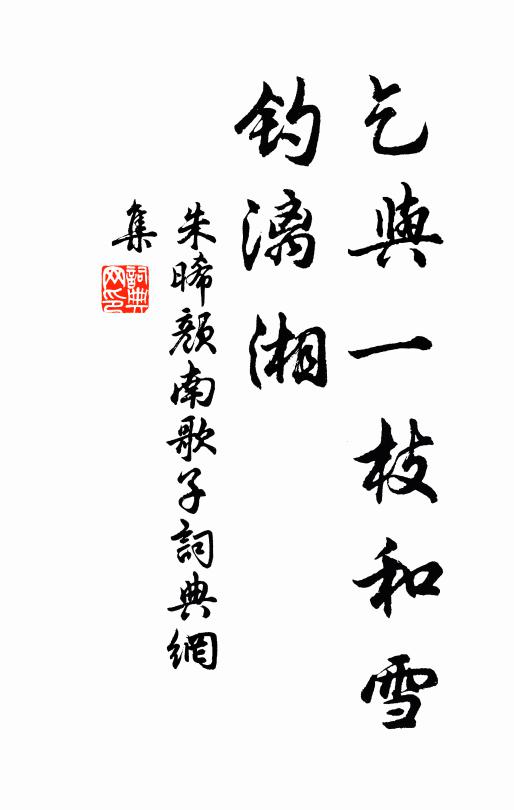 乞與一枝和雪
釣漓湘
朱晞顏南歌子詞典網
集
詞典網印